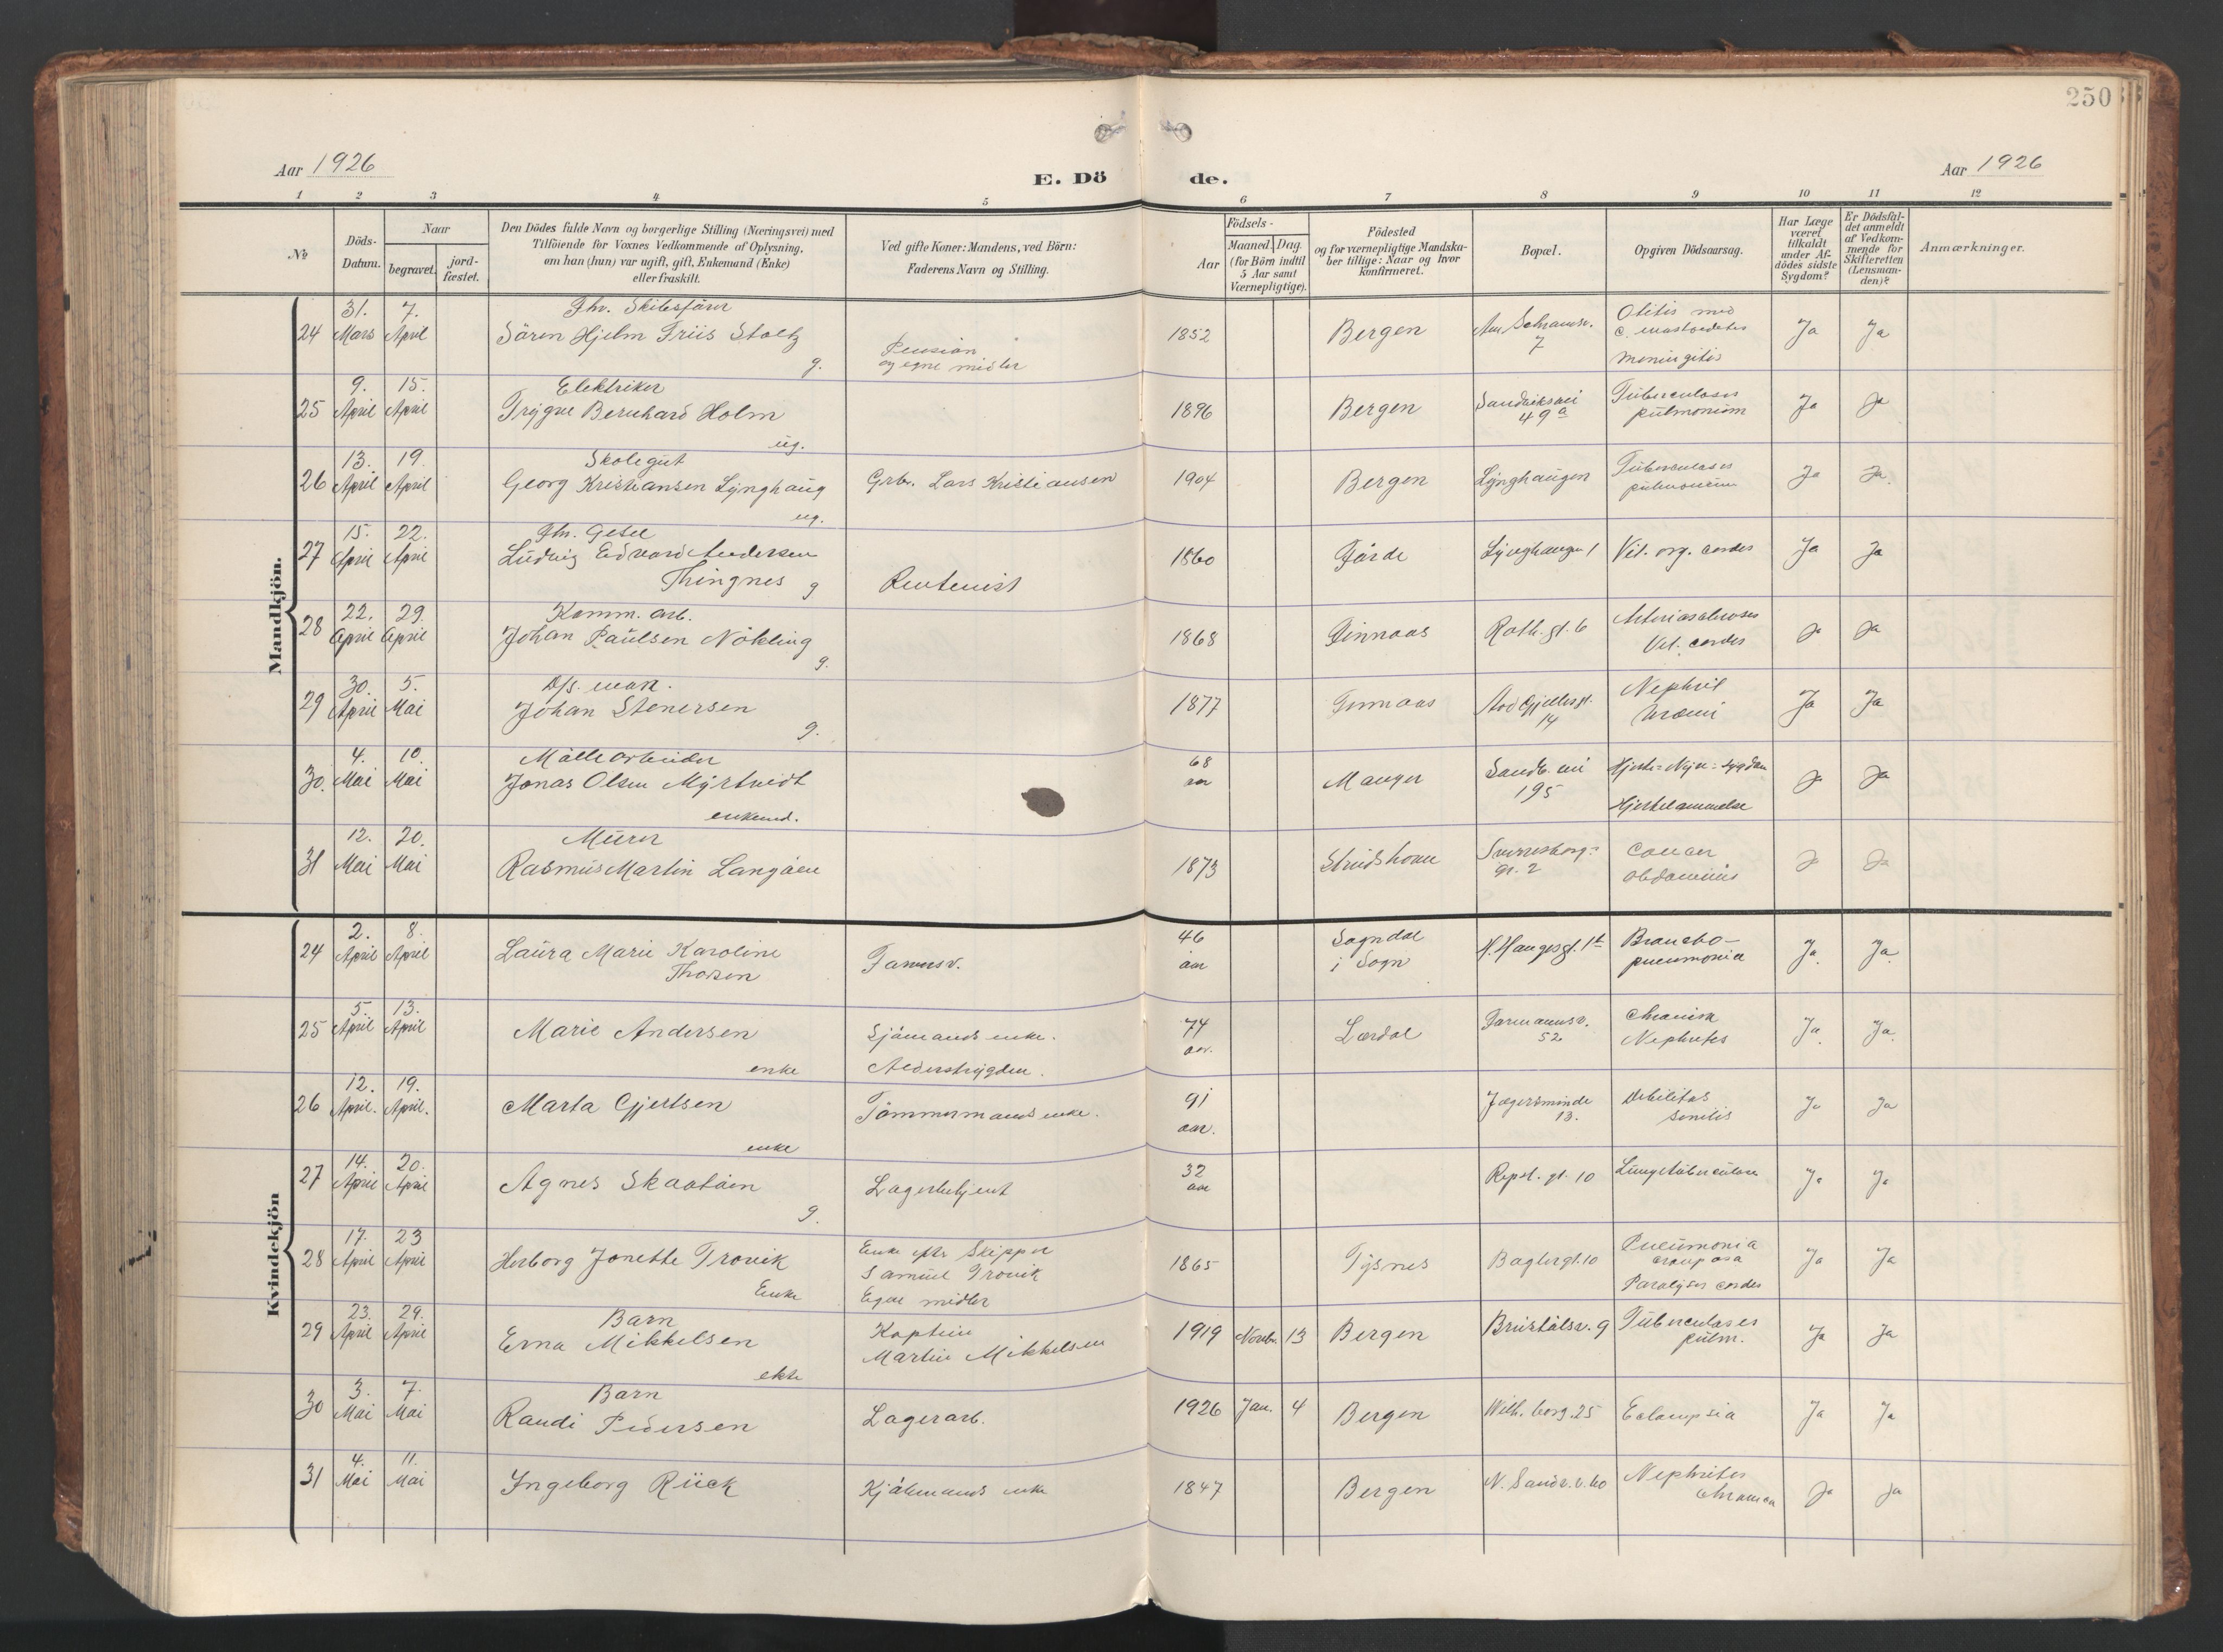 250
Aar 1926
E. Dö de.
Aar 1926
1 2 3 4 5 6 7 8 9 10 11 12
№
Döds-Datum.
Naar
begravet.
jord-fæstet.
Den Dödes fulde Navn og borgerlige Stilling (Næringsvei) med
Tilföiende for Voxnes Vedkommende af Oplysning,
om han (hun) var ugift, gift, Enkemand (Enke)
eller fraskilt.
Ved gifte Koner: Mandens, ved Börn:
Faderens Navn og Stilling.
Födsels-
Aar
Maaned. Dag.
(for Börn indtil
5 Aar samt
Værnepligtige).
Födested
og for værnepligtige Mandska-
ber tillige: Naar og hvor
konfirmeret.
Bopæl.
Opgiven Dödsaarsag.
Har Læge
været
tilkaldt
under Af-
dödes sidste
Sygdom?
Er Dödsfal-
det anmeldt
af Vedkom-
mende for
Skifteretten
(Lensman-
den)?
Anmærkninger.
Mandkjön.
24 31. Mars 7. April
Fhv. Skibsförer
Sören Hjelm Friis Stoltz
g.
Pension
og egne midler
1852 Bergen
7
Otitis med
c. mastoiditis
Meningitis
Ja Ja
25 9. April 15. April
Elektriker
Trygve Bernhard Holm
ug.
1896 Bergen
Sandviksvei
49a
Tuberculosis
pulmonum
Ja Ja
26 13. April 19. April
Skolegut
Georg Kristiansen Lynghaug
ug.
Grb. Lars Kristiansen
1904 Bergen Lynghaugen
Tuberculosis
pulmonum
Ja Ja.
27 15. April 22. April
Fhv. Gesel
Ludvig Edvard Andersen
Thingnes g
Rentenist
1860 Förde Lynghaugen 1 Vit. org. cordis Ja Ja
28 22. April 29. April
Komm. arb.
Johan Paulsen Nökling
g.
1868 Finnaas Roth. gt. 6
Arteriosclerosis
Vit. cordis
Ja Ja
29 30. April 5. Mai
D/s. mask.
Johan Stenersen
g.
1877 Finnaas
14
Nephrit
Uræmi
Ja Ja
30. 4. Mai 10. Mai
Möllearbeider
Jonas Olsen Myrtvedt
enkemd.
68
aar
Manger
Sandv. vei
195
Hjerte-Nyre-sygdom
Hjertelammelse
Ja Ja
31 12. Mai 20. Mai
Murer
Rasmus Martin Langåen
1873
Sverresborg-
gt. 2
Cancer
abdominis
Ja Ja
Kvindekjön
24 2. April 8. April
Laura Marie Karoline
Thorsen
46
aar
Sogndal
i Sogn
H. Haugesgt. 1b
Broncho-
pneumonia
Ja. Ja.
25 5. April 13. April
Marie Andersen
enke
Sjömands enke.
Alderstrygden.
74
aar.
Lærdal
Formannsv.
52
Chronisk
Nephritis
Ja. Ja.
26 12. April. 19. April.
Marta Gjertsen
enke
Tömmermands enke.
91
aar.
Jægersminde
13.
Debilitas
senilis
Ja Ja
27 14. April 20. April
Agnes Skaatöien
g.
Lagerbetjent
32
aar
Repsl. gt. 10 Lungetuberculose Ja Ja
28 17. April 23 April
Herborg Jonette Trovik
Enke
Enke efter Skipper
Samuel Trovik
Egne midler
1865 Tysnes Baglergt. 10
Pneumonia
crouposa
Paralysis cordis
Ja Ja
29 23. April 29. April
Barn
Erna Mikkelsen
ekte
Kaptein
Martin Mikkelsen
1919 Novbr. 13 Bergen
Tuberculosis
pulm.
Ja Ja
30 3. Mai 7. Mai
Barn
Randi Pedersen
Lagerarb.
1926 Jan. 4 Bergen Wilh. borg. 25 Eclampsia Ja Ja
31 4. Mai 11. Mai
Ingeborg Rück
Kjöbmands enke
1847 Bergen N. Sandv. v. 60
Nephritis
chronica
Ja Ja